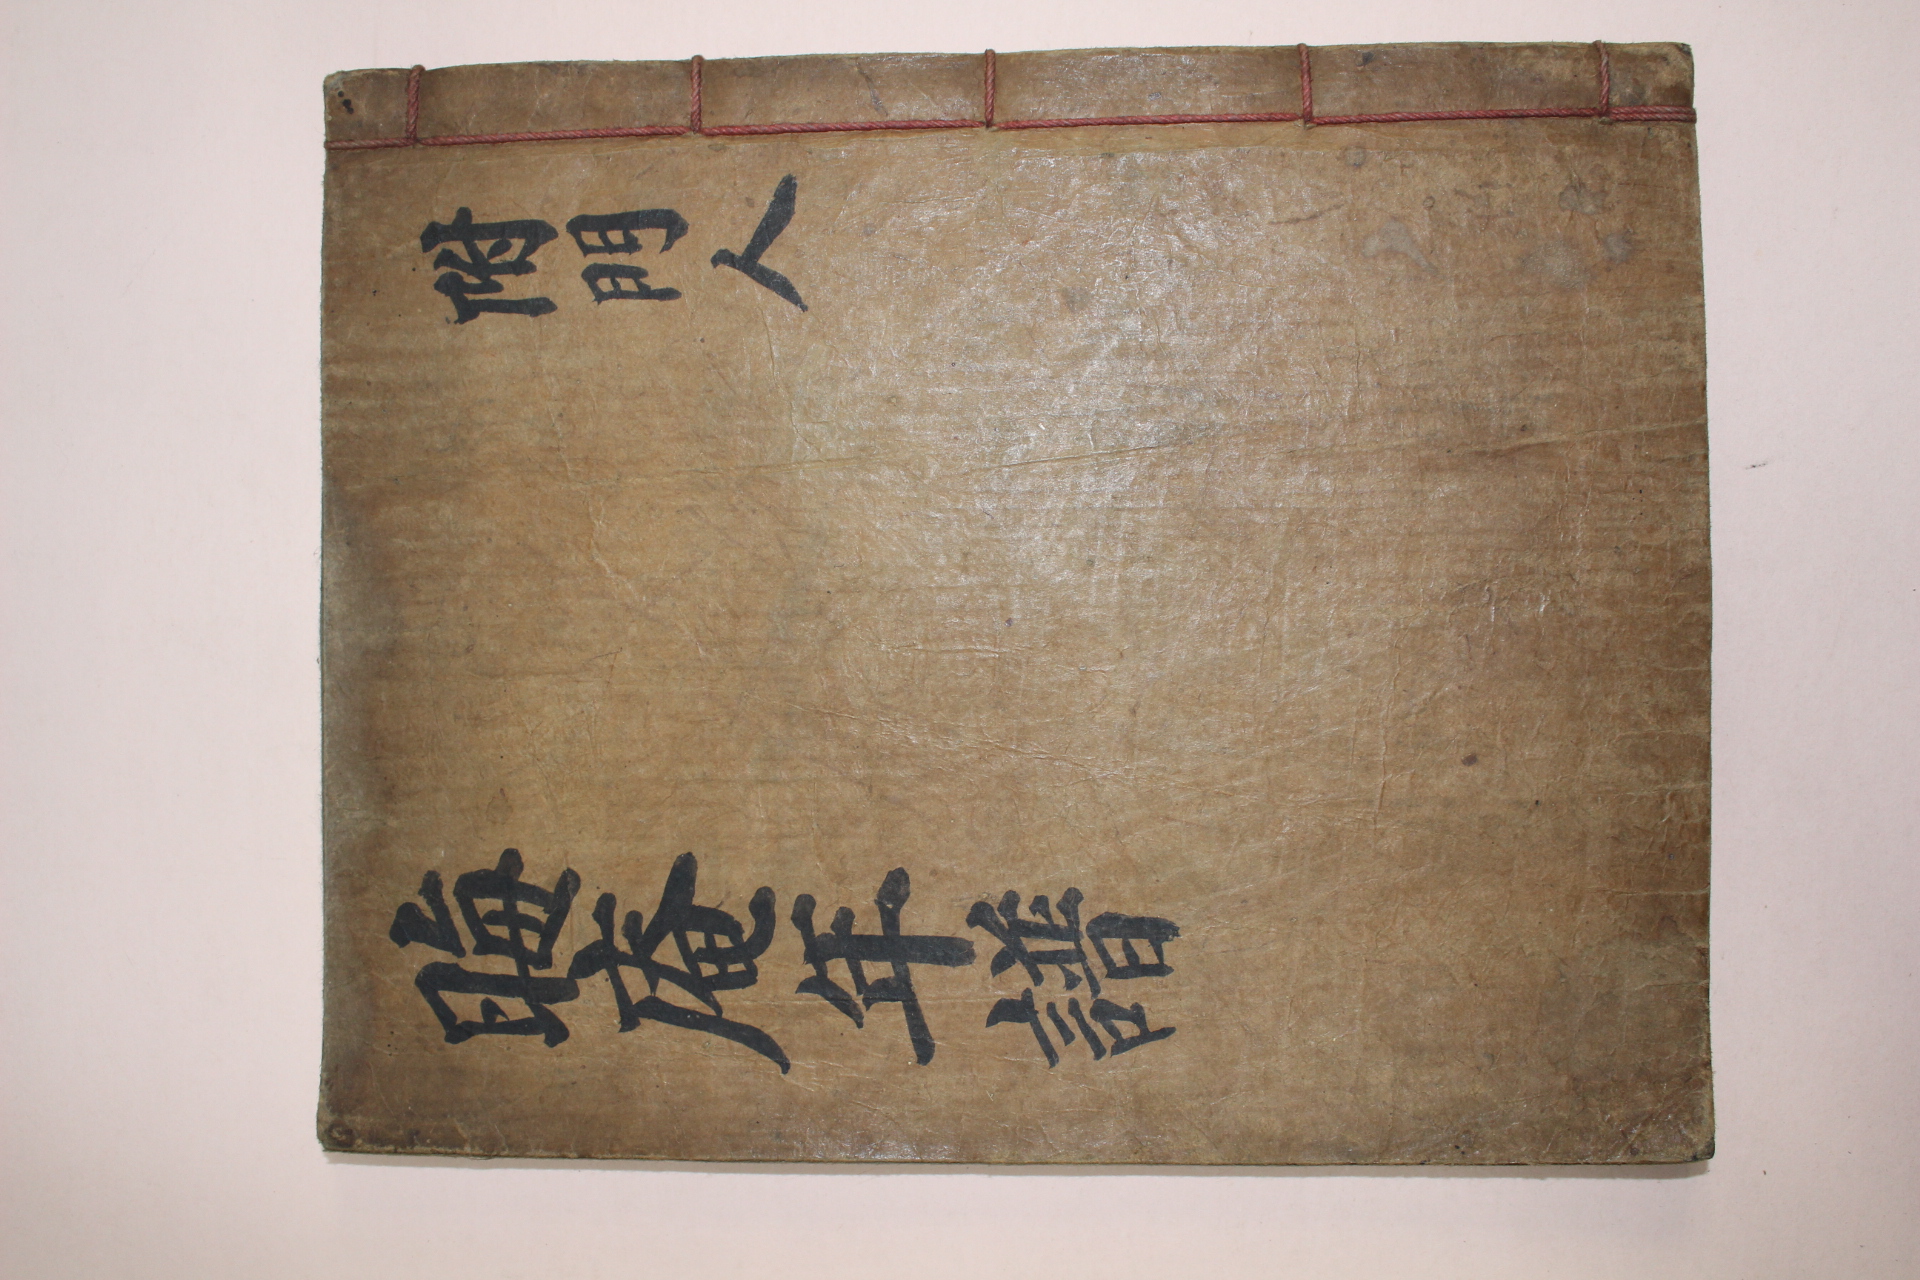 晦庵年譜
附門人